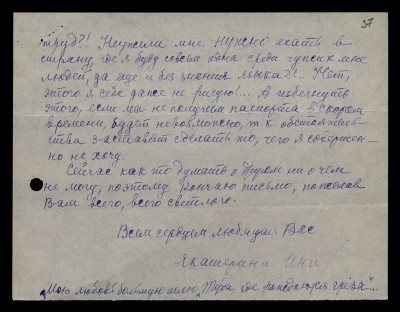 37
труд?! Неужели мне нужно ехать в
страну, где я буду совсем одна среди чужих мне
людей, да еще и без знания языка?!.. Нет,
этого я себе даже не рисую!... А избегнуть
этого, если мы не получим паспорта в скором
времени, будет невозможно, т.к обстоятель-
ства заставят сделать то, чего я совершен-
но не хочу.
Сейчас как то думать о другом ни о чем
не могу, поэтому кончаю письмо, пожелав
Вам всего, всего светлого.
Всем сердцем любящая Вас
Екатерина Инге
"Мою любовь большую шлю, "Туда где рождаются грезы"...